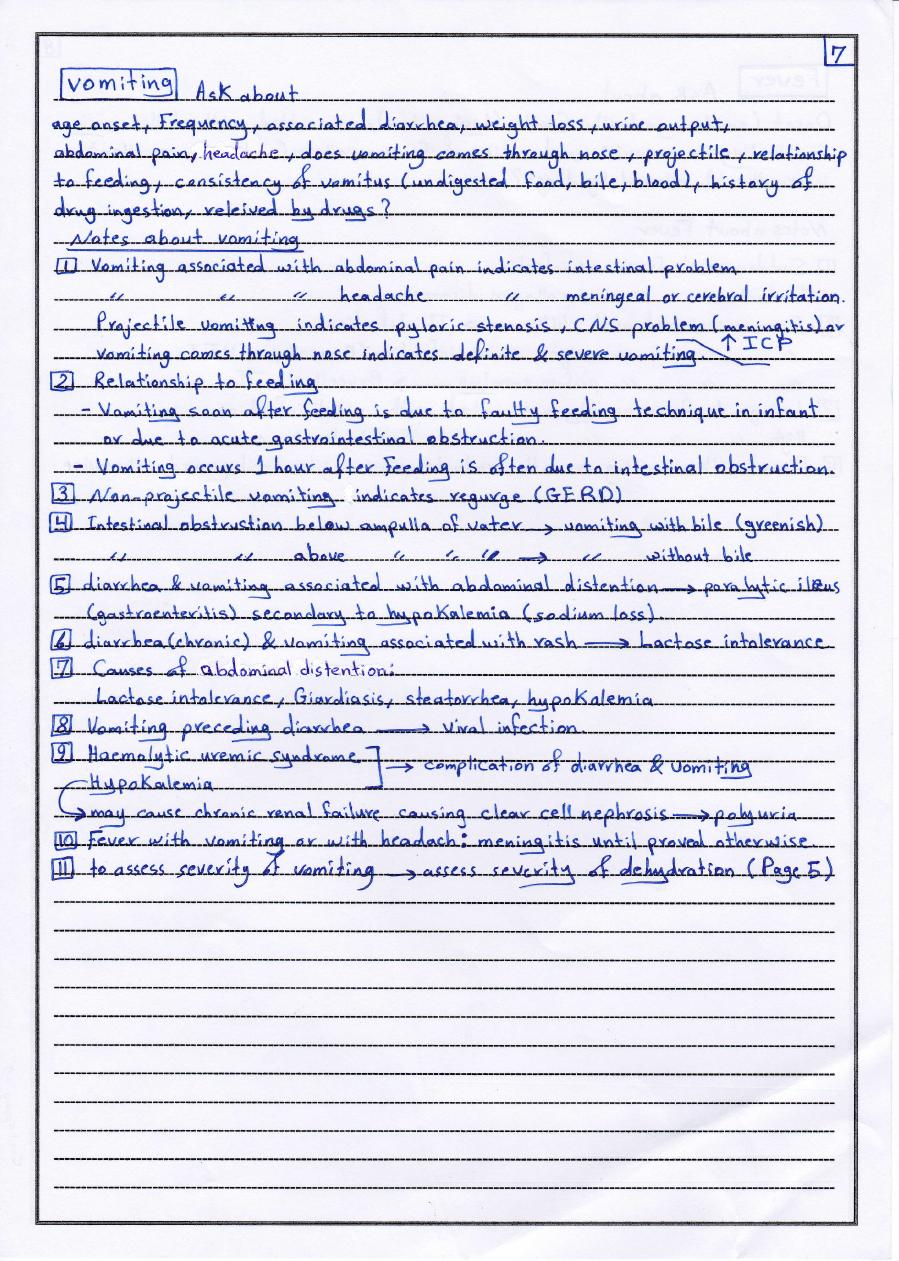 7
Vomiting Ask about
age onset, Frequency, associated diarrhea, weight loss, urine output,
abdominal pain, headache, does vomiting comes through nose, projectile, relationship
to feeding, consistency of vomitus (undigested food, bile, blood), history of
drug ingestion, releived by drugs?
Notes about vomiting
1 Vomiting associated with abdominal pain indicates intestinal problem
" " " headache " meningeal or cerebral irritation.
Projectile vomiting indicates pyloric stenosis, CNS problem (meningitis) or
↑ ICP
vomiting comes through nose indicates definite & severe vomiting.
2 Relationship to feeding
- Vomiting soon after feeding is due to faulty feeding technique in infant
or due to acute gastrointestinal obstruction.
- Vomiting occurs 1 hour after Feeding is often due to intestinal obstruction.
3 Non-projectile vomiting indicates regurge (GERD)
4 Intestinal obstruction below ampulla of vater → vomiting with bile (greenish)
" " above " " " → " without bile
5 diarrhea & vomiting associated with abdominal distention → paralytic ileus
(gastroenteritis) secondary to hypokalemia (sodium loss).
6 diarrhea (chronic) & vomiting associated with rash → Lactose intolerance
7 Causes of abdominal distention:
Lactose intolerance, Giardiasis, steatorrhea, hypokalemia
8 Vomiting preceding diarrhea → viral infection.
9 Haemolytic uremic syndrome ] → complication of diarrhea & vomiting
Hypokalemia
→ may cause chronic renal failure causing clear cell nephrosis → polyuria
10 Fever with vomiting or with headach: meningitis until proved otherwise.
11 to assess severity of vomiting → assess severity of dehydration (Page 5)